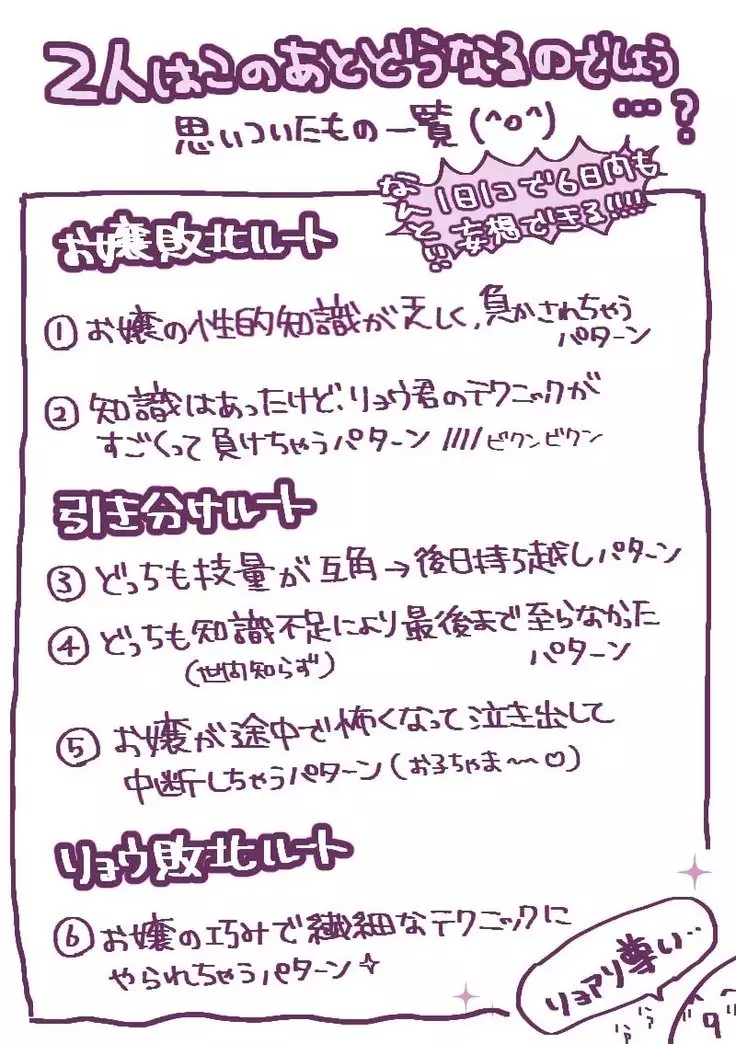 2人はこのあとどうなるのでしょう
…?
思いついたもの一覧(^o^)
なんと!!
1日1コで6日内も
妄想できる!!!!
お嬢敗北ルート
① お嬢の性的知識が乏しく、負かされちゃう
パターン
② 知識はあったけど、リョウ君のテクニックが
すごくって負けちゃうパターン //// ビクンビクン
引き分けルート
③ どっちも技量が互角→後日持ち越しパターン
④ どっちも知識不足により最後まで至らなかった
(世間知らず) パターン
⑤ お嬢が途中で怖くなって泣き出して
中断しちゃうパターン(お子ちゃま〜〜♡)
リョウ敗北ルート
⑥ お嬢の巧みで繊細なテクニックに
やられちゃうパターン✧
リョアリ尊い…